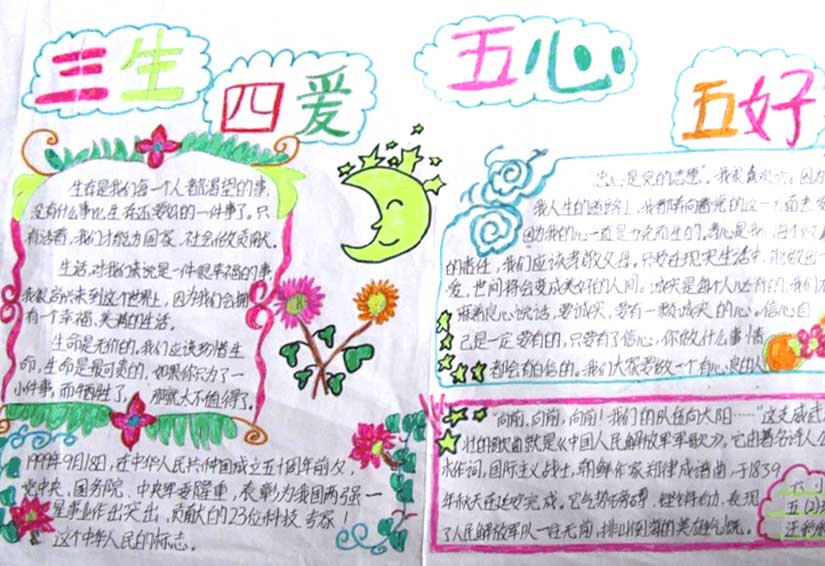 三生
四爱
五心
五好
生存是我们每一个人都渴望的事,
没有什么事比生存还要好的一件事了。只
有活着,我们才能为国家、社会做贡献。
生活,对我们来说是一件很幸福的事,
我很高兴来到这个世界上,因为我们会拥
有一个幸福、美满的生活。
生命是无价的。我们应该珍惜生
命,生命是最可贵的,如果你只为了一
小件事,而牺牲了,那就太不值得了。
1999年9月18日,在中华人民共和国成立五十周年前夕,
党中央、国务院、中央军委隆重,表彰为我国两弹一
星事业作出突出,贡献的23位科技专家!
这个中华人民的标志。
忠心是党的志愿"。我很喜欢它。因为
我人生的道路上,我都有向着党的这一方面走
因为我的心一直是为党而生的。孝心是我们每个
的责任,我们应该孝敬父母。只要在现实生活中,
爱,世间将会变成美好的人间。诚实是每个人必有的,我们
凭着良心说话,要诚实,要有一颗诚实的心。信心自
己是一定要有的,只要有了信心,你做什么事情
都会有自信的。我们大家要做一个有心良的人
"向前,向前,向前!我们的队伍向太阳……"这支威武
壮的歌曲就是《中国人民解放军军歌》,它由著名诗人公
木作词,国际主义战士,朝鲜作家郑律成谱曲,于1839
年秋天在延安完成。它气势磅礴,铿锵有力,表现
了人民解放军队一往无前,排山倒海的英雄气慨。
六
五(2)